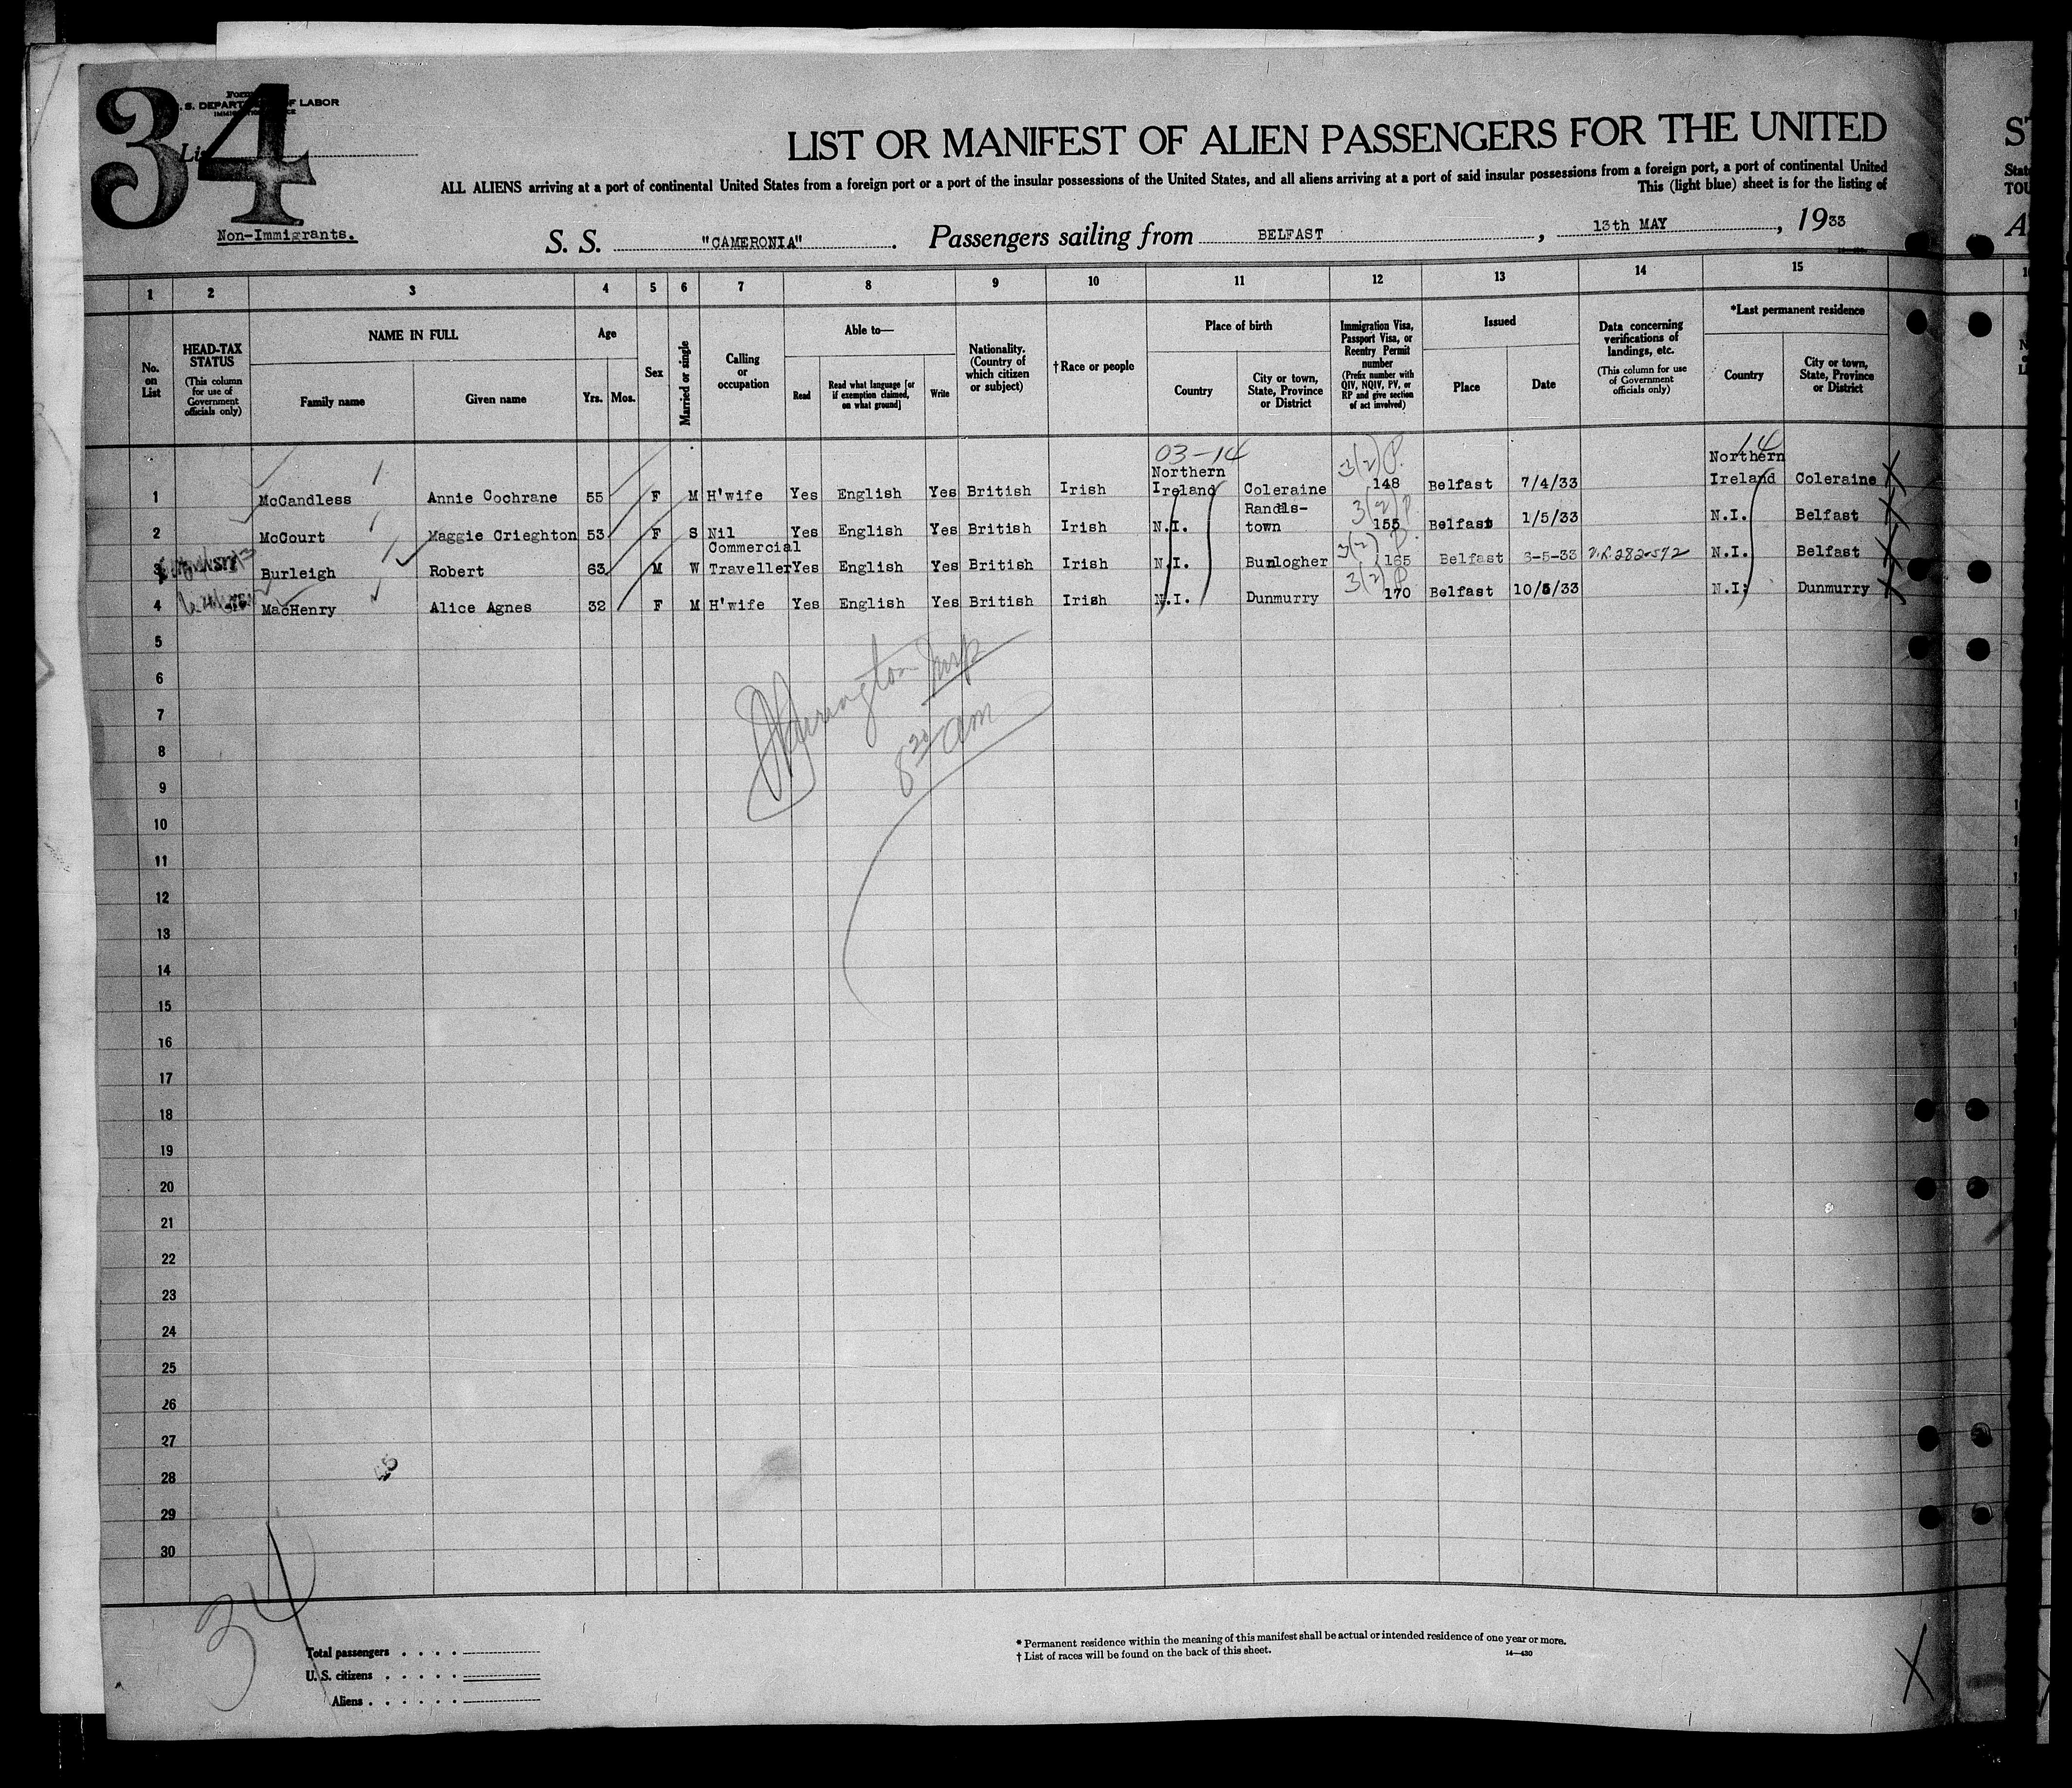 34
S. DEPARTMENT OF LABOR
Non-Immigrants.
LIST OR MANIFEST OF ALIEN PASSENGERS FOR THE UNITED
ALL ALIENS arriving at a port of continental United States from a foreign port or a port of the insular possessions of the United States, and all aliens arriving at a port of said insular possessions from a foreign port, a port of continental United
This (light blue) sheet is for the listing of
S. S. "CAMERONIA". Passengers sailing from BELFAST, 13th MAY, 1933
1 2 3 4 5 6 7 8 9 10 11 12 13 14 15
No. on List
HEAD-TAX STATUS
(This column for use of Government officials only)
NAME IN FULL
Family name
Given name
Age
Yrs. Mos.
Sex
Married or single
Calling or occupation
Able to—
Read
Read what language [or if exemption claimed, on what ground]
Write
Nationality. (Country of which citizen or subject)
†Race or people
Place of birth
Country
City or town, State, Province or District
Immigration Visa, Passport Visa, or Reentry Permit number
(Prefix number with QIV, NQIV, PV, or RP and give section of act involved)
Issued
Place
Date
Data concerning verifications of landings, etc.
(This column for use of Government officials only)
*Last permanent residence
Country
City or town, State, Province or District
03-14 3(2)P. 14
1 McCandless Annie Cochrane 55 F M H'wife Yes English Yes British Irish Northern Ireland Coleraine 148 Belfast 7/4/33 Northern Ireland Coleraine
2 McCourt Maggie Crieghton 53 F S Nil Yes English Yes British Irish N.I. Randls-town 3(2)P. 155 Belfast 1/5/33 N.I. Belfast
3 Burleigh Robert 63 M W Commercial Traveller Yes English Yes British Irish N.I. Bunlogher 3(2) P. 165 Belfast 8-5-33 V.R. 282-572 N.I. Belfast
4 MacHenry Alice Agnes 32 F M H'wife Yes English Yes British Irish N.I. Dunmurry 3(2)P. 170 Belfast 10/5/33 N.I. Dunmurry
5
6
7
8
9
10
11
12
13
14
15
16
17
18
19
20
21
22
23
24
25
26
27
28
29
30
8 20 am
34
Total passengers
U. S. citizens
Aliens
* Permanent residence within the meaning of this manifest shall be actual or intended residence of one year or more.
† List of races will be found on the back of this sheet.
14—430